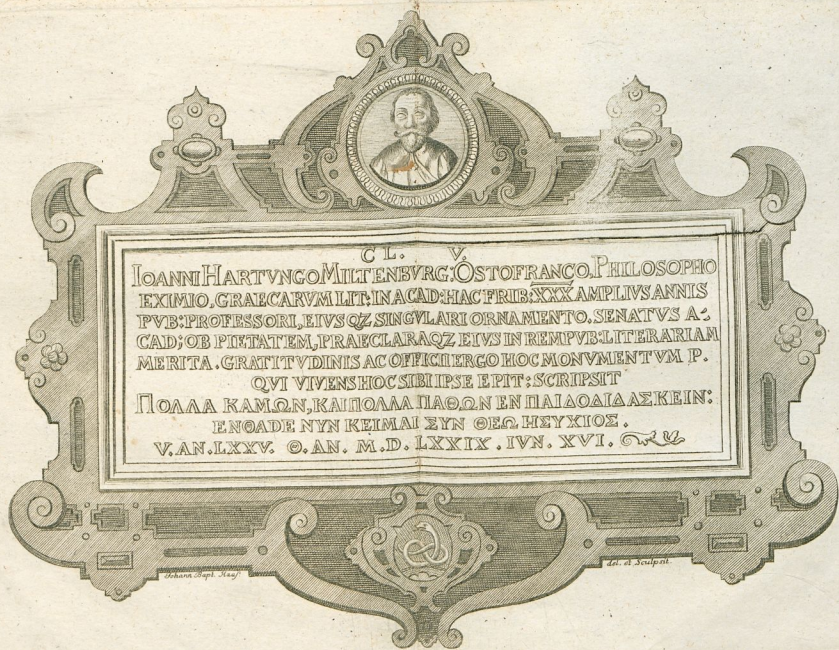 CL. V.
IOANNI HARTVNGO MILTENBVRG: OSTOFRANCO, PHILOSOPHO
EXIMIO, GRAECARVM LIT: IN ACAD: HAC FRIB: XXX AMPLIVS ANNIS
PVB: PROFESSORI, EIVSQZ SINGVLARI ORNAMENTO, SENATVS A-
CAD; OB PIETATEM, PRAECLARAQZ EIVS IN REMPVB: LITERARIAM
MERITA. GRATITVDINIS AC OFFICII ERGO HOC MONVMENTVM P.
QVI VIVENS HOC SIBI IPSE EPIT: SCRIPSIT
ΠΟΛΛΑ ΚΑΜΩΝ, ΚΑΙ ΠΟΛΛΑ ΠΑΘΩΝ ΕΝ ΠΑΙΔΟΔΙΔΑΣΚΕΙΝ:
ΕΝΘΑΔΕ ΝΥΝ ΚΕΙΜΑΙ ΣΥΝ ΘΕΩ ΗΣΥΧΙΟΣ.
V. AN. LXXV. Θ. AN. M.D. LXXIX. IVN. XVI.
Johann Bapt. Haus
del. et Sculpsit.